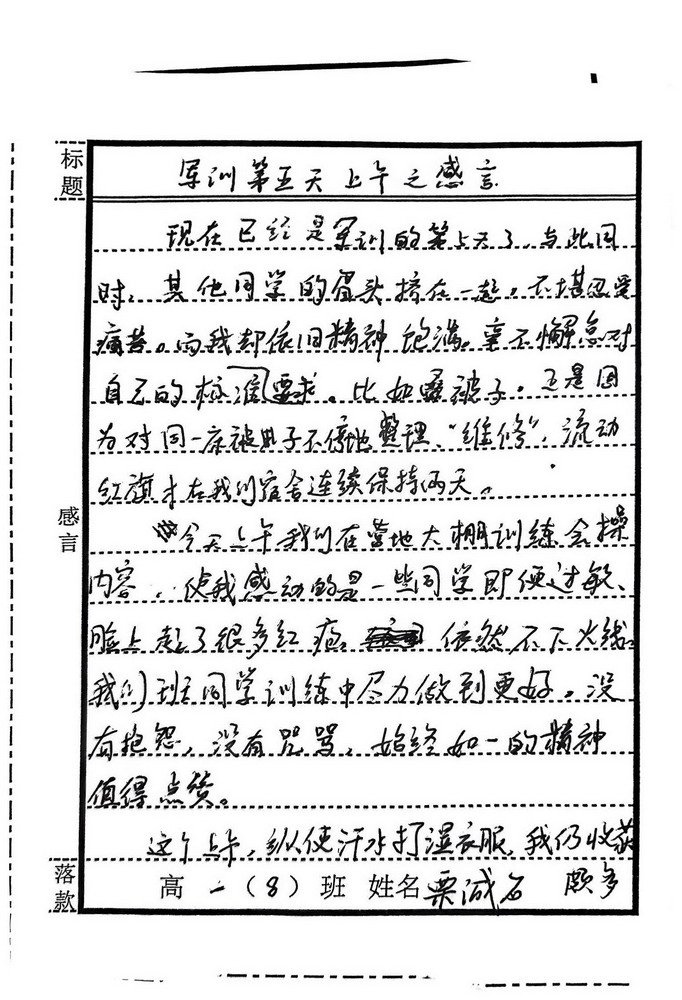 标题
军训第五天上午之感言
现在已经是军训的第五天了,与此同
时,其他同学的骨头挤在一起,不堪忍受
痛苦。而我却依旧精神饱满。毫不懈怠对
自己的标准要求。比如叠被子。正是因
为对同一床被子不停地整理、“维修”,流动
红旗才在我们宿舍连续保持两天。
今天上午我们在营地大棚训练会操
内容。使我感动的是一些同学即便过敏、
脸上起了很多红痘,依然不下火线。
我们班同学训练中尽力做到更好。没
有抱怨,没有咒骂,始终如一的精神
值得点赞。
这个上午,纵使汗水打湿衣服,我仍收获
颇多
感言
落款
高一(8)班 姓名 栗诚石